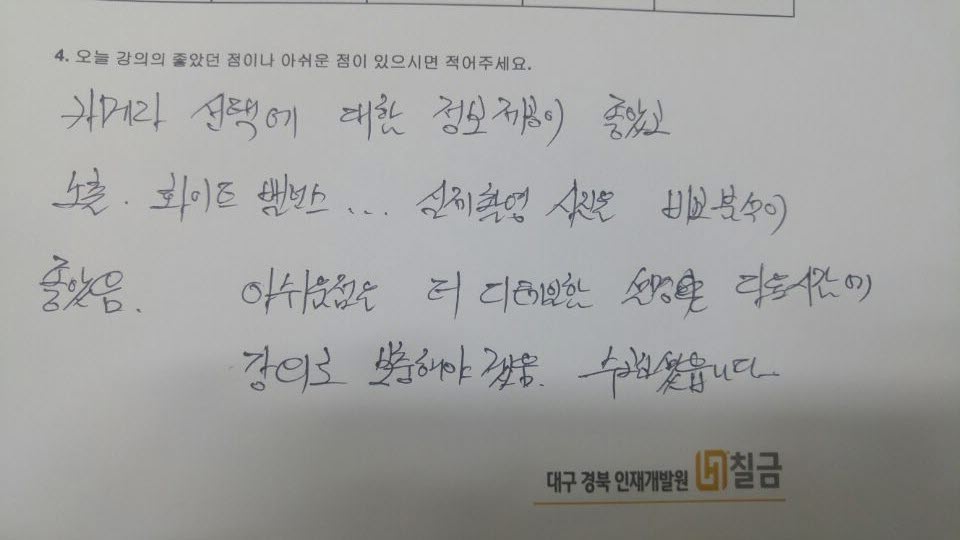 4. 오늘 강의의 좋았던 점이나 아쉬운 점이 있으시면 적어주세요.
카메라 선택에 대한 정보제공이 좋았고
노출. 화이트 밸런스... 실제촬영 사진을 비교분석이
좋았음. 아쉬운점은 더 디테일한 설명은 다음시간에
강의로 보충해야 겠음. 수고하셨습니다
대구 경북 인재개발원 칠금